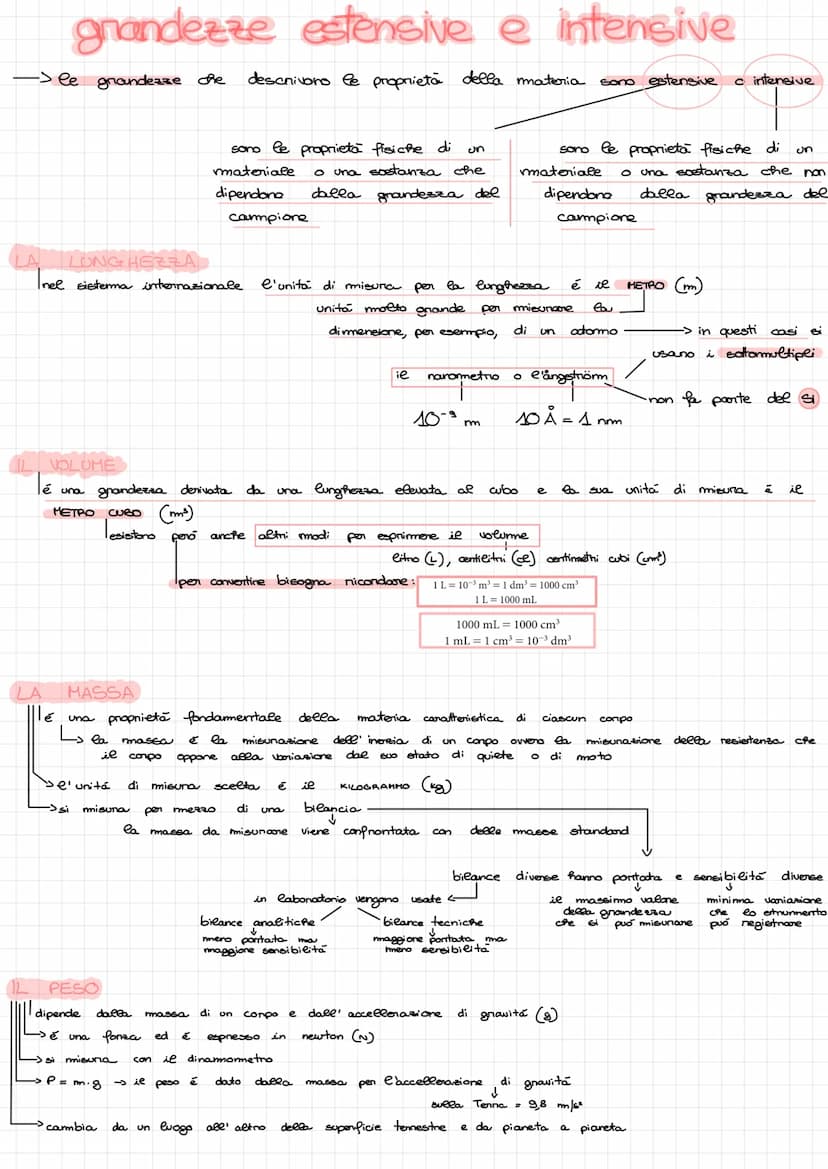 grandezze estensive e intensive
—> le grandezze che descrivono le proprietà della materia sono estensive o intensive
sono le proprietà fisiche di un
materiale o una sostanza che
dipendono dalla grandezza del
campione
sono le proprietà fisiche di un
materiale o una sostanza che non
dipendono dalla grandezza del
campione
LA LUNGHEZZA
nel sistema internazionale l'unità di misura per la lunghezza é il METRO (m)
unità molto grande per misurare la
dimensione, per esempio, di un atomo —> in questi casi si
usano i sottomultipli
il nanometro o l'ångström
non fa parte del SI
10⁻⁹ m 10 Å = 1 nm
IL VOLUME
é una grandezza derivata da una lunghezza elevata al cubo e la sua unità di misura é il
METRO CUBO (m³)
esistono però anche altri modi per esprimere il volume
litro (L), centilitri (cl) centimetri cubi (cm³)
per convertire bisogna ricordare:
1 L = 10⁻³ m³ = 1 dm³ = 1000 cm³
1 L = 1000 mL
1000 mL = 1000 cm³
1 mL = 1 cm³ = 10⁻³ dm³
LA MASSA
é una proprietà fondamentale della materia caratteristica di ciascun corpo
la massa é la misurazione dell'inerzia di un corpo ovvero la misurazione della resistenza che
il corpo oppone alla variazione dal suo stato di quiete o di moto
l'unità di misura scelta é il KILOGRAMMO (kg)
si misura per mezzo di una bilancia
la massa da misurare viene confrontata con delle masse standard
bilance diverse hanno portata e sensibilità diverse
in laboratorio vengono usate
il massimo valore
della grandezza
che si può misurare
minima variazione
che lo strumento
può registrare
bilance analitiche
meno portata ma
maggiore sensibilità
bilance tecniche
maggiore portata ma
meno sensibilità
IL PESO
dipende dalla massa di un corpo e dall'accellerazione di gravità (g)
é una forza ed é espresso in newton (N)
si misura con il dinamometro
P = m·g → il peso é dato dalla massa per l'accellerazione di gravità
sulla Terra = 9,8 m/s²
cambia da un luogo all'altro della superficie terrestre e da pianeta a pianeta